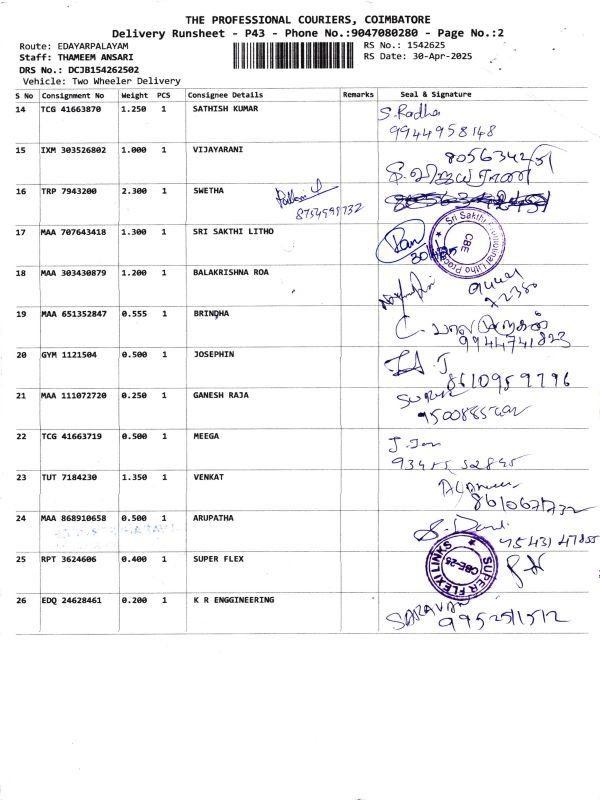 THE PROFESSIONAL COURIERS, COIMBATORE
Delivery Runsheet - P43 - Phone No.:9047080280 - Page No.:2
Route: EDAYARPALAYAM
RS No.: 1542625
Staff: THAMEEM ANSARI
RS Date: 30-Apr-2025
DRS No.: DCJB154262502
Vehicle: Two Wheeler Delivery
S No Consignment No Weight PCS Consignee Details Remarks Seal & Signature
14 TCG 41663870 1.250 1 SATHISH KUMAR S.Radha
9944958148
15 IXM 303526802 1.000 1 VIJAYARANI
16 TRP 7943200 2.300 1 SWETHA
17 MAA 707643418 1.300 1 SRI SAKTHI LITHO
18 MAA 303430879 1.200 1 BALAKRISHNA ROA
19 MAA 651352847 0.555 1 BRINDHA
9944741823
20 GYM 1121504 0.500 1 JOSEPHIN
8610959796
21 MAA 111072720 0.250 1 GANESH RAJA
22 TCG 41663719 0.500 1 MEEGA
23 TUT 7184230 1.350 1 VENKAT
24 MAA 868910658 0.500 1 ARUPATHA
25 RPT 3624606 0.400 1 SUPER FLEX
SUPER FLEXI LINKS
CBE-25
26 EDQ 24628461 0.200 1 K R ENGGINEERING SARAVAN